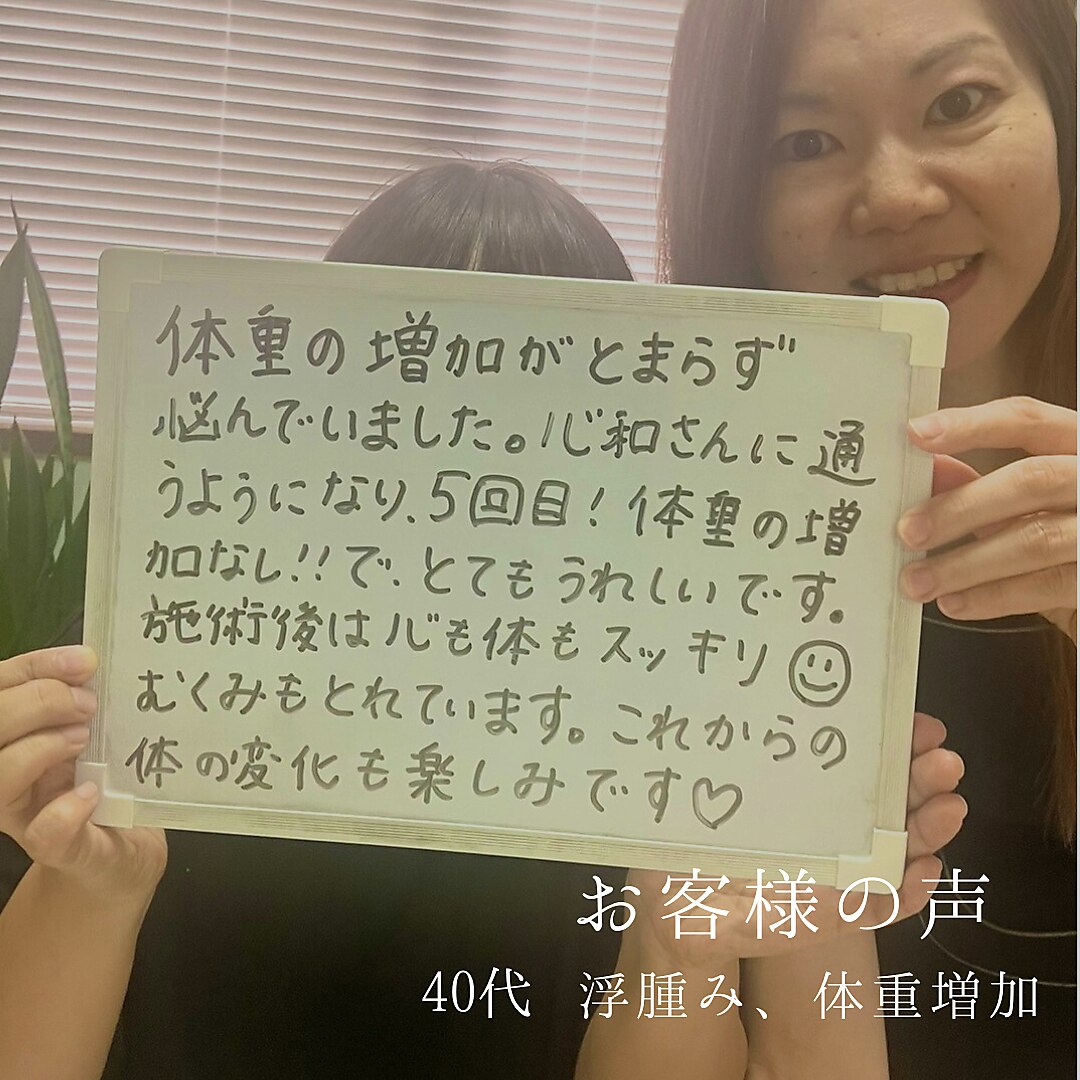 体重の増加がとまらず
悩んでいました。心和さんに通
うようになり、5回目!体重の増
加なし!!で、とてもうれしいです。
施術後は心も体もスッキリ
むくみもとれています。これからの
体の変化も楽しみです♡
お客様の声
40代 浮腫み、体重増加